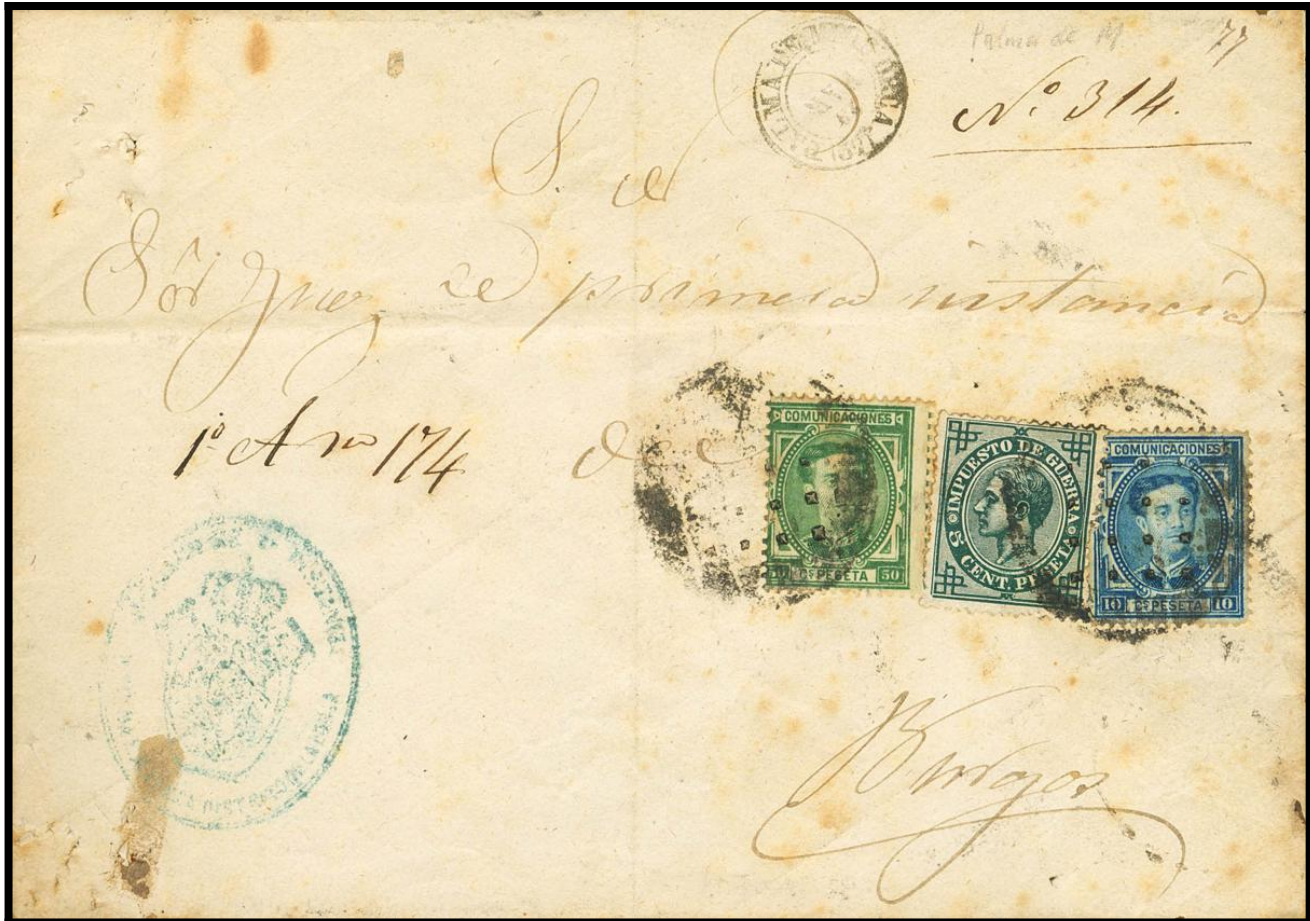 Palma de M. 77
Nº 314.
PALMA DE MALLORCA
S. N
Sôr Juez de primera instancia
1º A no 174
de
COMUNICACIONES
50 Cs PESETA 50
IMPUESTO DE GUERRA
5 CENT. PESETA
COMUNICACIONES
10 Cs PESETA 10
Burgos